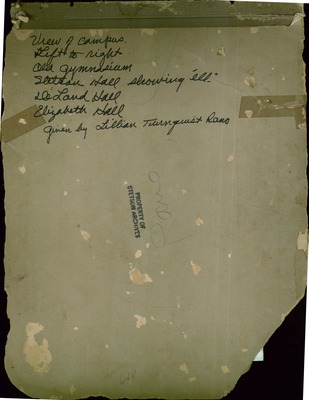 View of campus.
Left to right
Old Gymnasium
Stetson Hall showing "ell"
DeLand Hall
Elizabeth Hall
given by Lillian Turnquist
PROPERTY OF
STETSON ARCHIVES